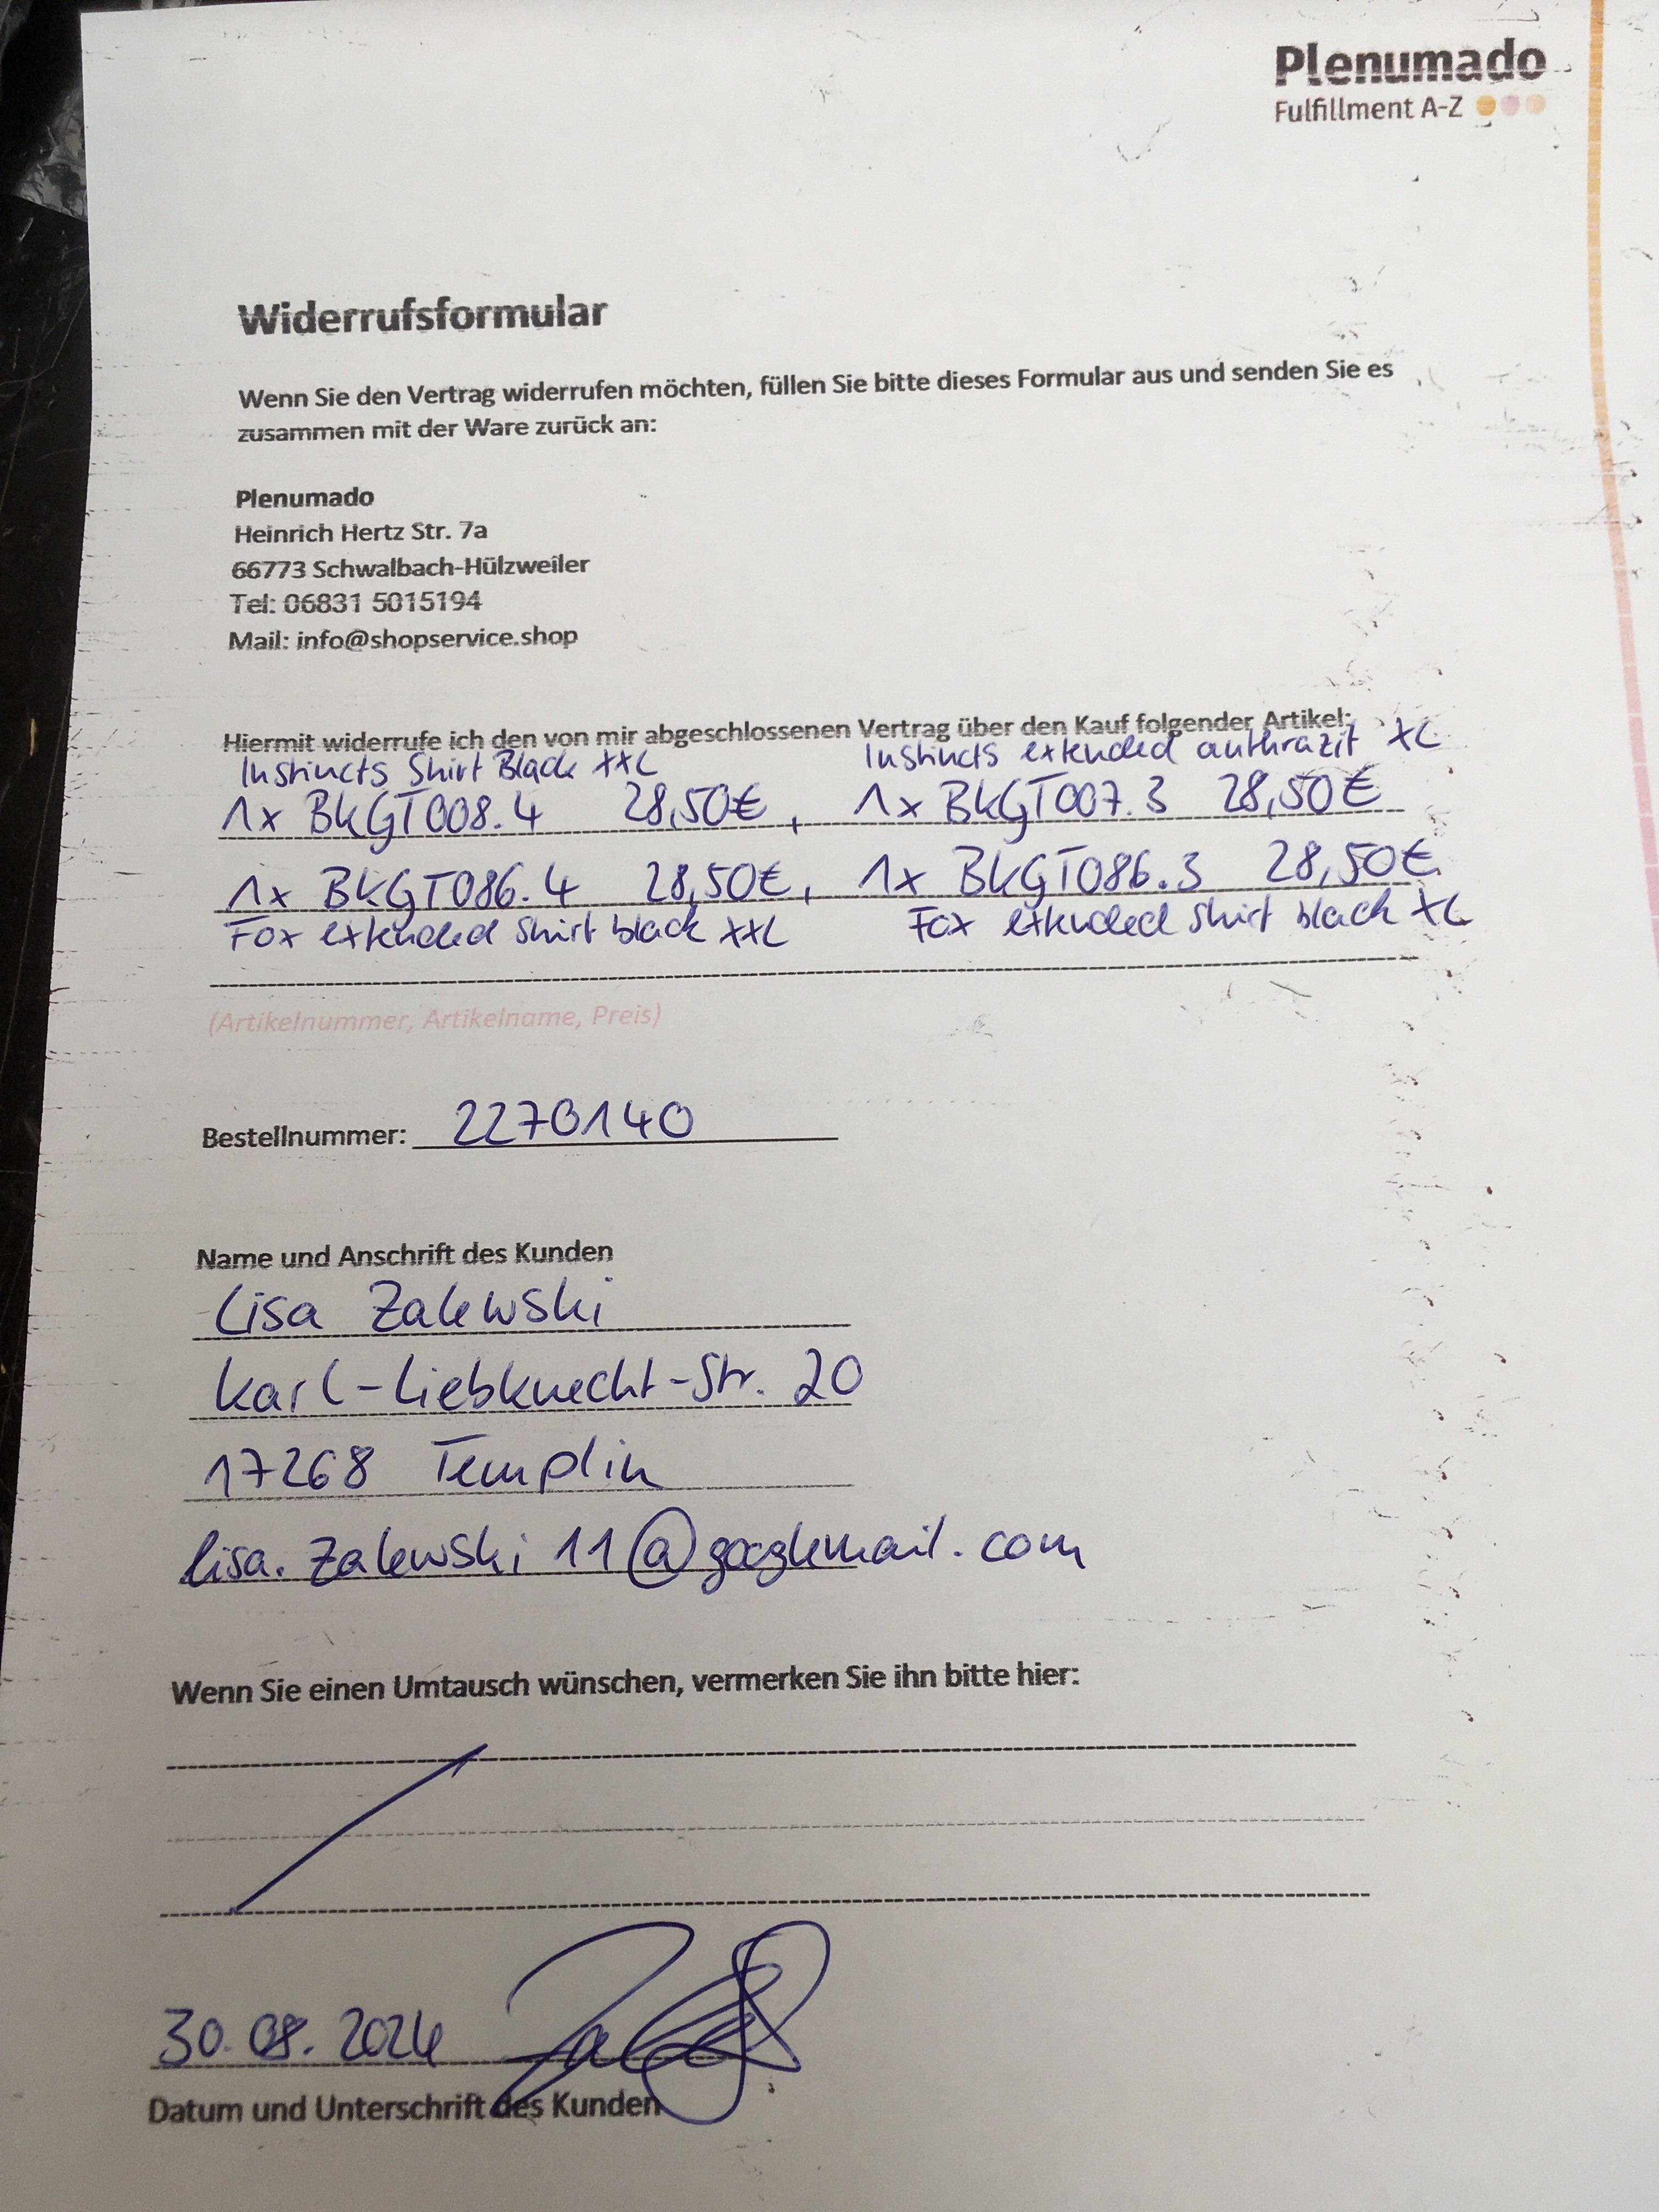 Plenumado
Fulfillment A-Z
Widerrufsformular
Wenn Sie den Vertrag widerrufen möchten, füllen Sie bitte dieses Formular aus und senden Sie es
zusammen mit der Ware zurück an:
Plenumado
Heinrich Hertz Str. 7a
66773 Schwalbach-Hülzweiler
Tel: 06831 5015194
Mail: info@shopservice.shop
Hiermit widerrufe ich den von mir abgeschlossenen Vertrag über den Kauf folgender Artikel:
Instincts Shirt Black XXL Instincts extended anthrazit XL
1x BKGT008.4 28,50€, 1x BKGT007.3 28,50€
1x BKGT086.4 28,50€, 1x BKGT086.3 28,50€
Fox extended Shirt black XXL Fox extended Shirt black XL
(Artikelnummer, Artikelname, Preis)
Bestellnummer: 2270140
Name und Anschrift des Kunden
Lisa Zalewski
Karl-Liebknecht-Str. 20
17268 Templin
lisa.zalewski11@googlemail.com
Wenn Sie einen Umtausch wünschen, vermerken Sie ihn bitte hier:
30.08.2024
Datum und Unterschrift des Kunden